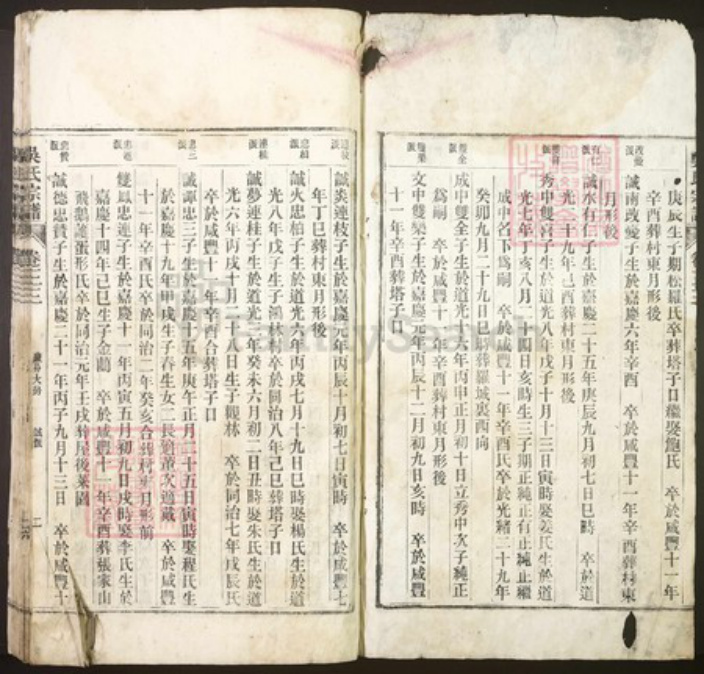 庚辰生子期松羅氏卒葬塔子口繼娶鮑氏 卒於咸豐十一年
辛酉葬村東月形後
誠南改變子生於嘉慶六年辛酉 卒於咸豐十一年辛酉葬村東
月形後
誠水有仁子生於嘉慶二十五年庚辰九月初七日巳時 卒於道
光二十九年己酉葬村東月形後
秀中雙喜子生於道光八年戊子十月十三日寅時娶姜氏生於道
光七年丁亥八月十四日亥時生三子期正純正有正純正繼
成中名下為嗣 卒於咸豐十一年辛酉氏卒於光緒二十九年
癸卯九月二十九日巳時葬羅城裏西向
成中雙全子生於道光十六年丙申正月初十日立秀中次子純正
為嗣 卒於咸豐十一年辛酉葬村東月形後
文中雙榮子生於嘉慶元年丙辰十二月初九日亥時 卒於咸豐
十一年辛酉葬塔子口
誠炎連枝子生於嘉慶元年丙辰十月初七日寅時 卒於咸豐七
年丁巳葬村東月形後
誠火忠柏子生於道光六年丙戌七月十九日巳時娶楊氏生於道
光八年戊子生子鴻林 卒於同治八年己巳葬塔子口
誠夢連桂子生於道光三年癸未六月初二日丑時娶朱氏生於道
光六年丙戌十月十八日生子觀林 卒於同治七年戊辰氏
卒於咸豐十一年辛酉合葬塔子口
誠譚忠三子生於嘉慶十五年庚午正月二十五日寅時娶程氏生
於嘉慶十九年甲戌生子春生女二長適董次適戴 卒於咸豐
十一年辛酉氏卒於同治二年癸亥合葬村東月形前
雙鳳忠連子生於嘉慶十一年丙寅五月初九日戌時娶李氏生於
嘉慶十四年己巳生子金蘭 卒於咸豐十一年辛酉葬張家山
飛鵝蛋形氏卒於同治元年壬戌葬屋後菜園
誠德忠贊子生於嘉慶二十一年丙子九月十三日 卒於咸豐十
吳氏宗譜 卷之二三